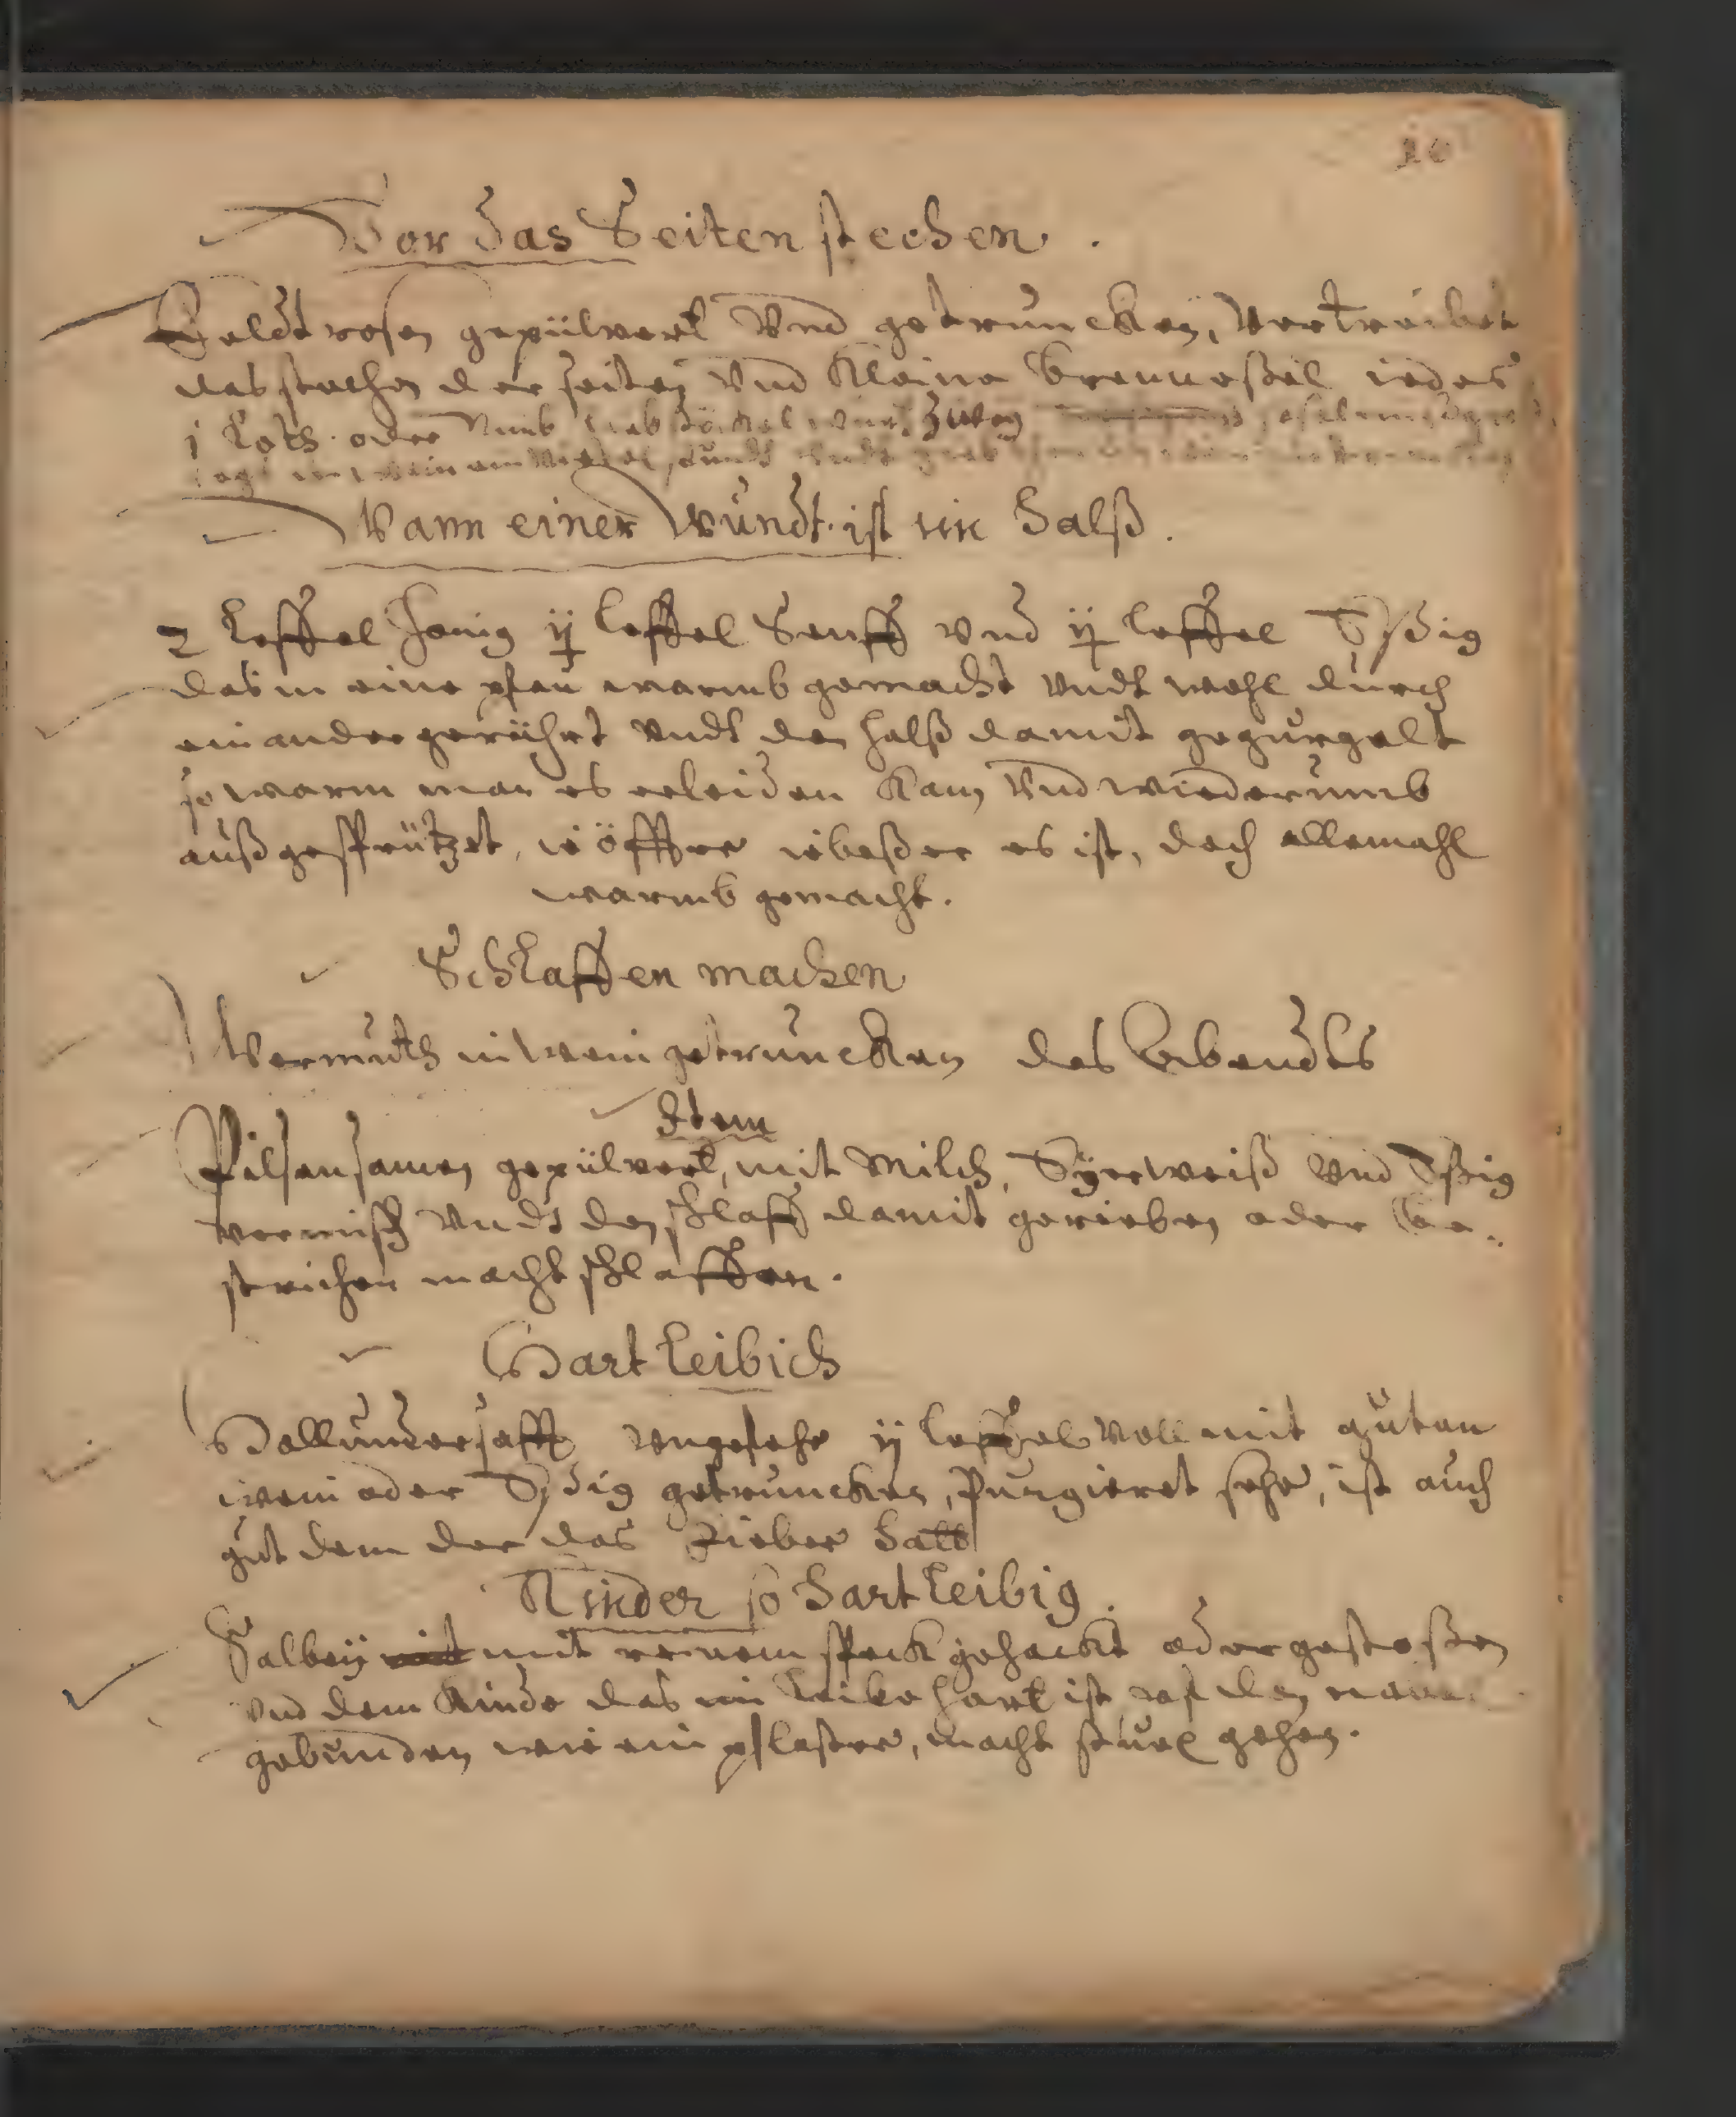 10
Vor das Seiten stechen.
Feldtrosen gepülvert Vnd getruncken, Vertreibet
das stechen der seiten Vnd Kleine brennesßel iedes
1 Loth. oder Nimb zuweg
Wann einer Wundt ist im Halß.
2 Leffel Honig ij Leffel Senff vnd ij Leffel Eßig
das in eine pfan warmb gemacht Vndt wohl durch
ein ander gerührt Vndt den halß damit gegurgelt
so warm man es erleiden Kan, Vnd wiederumb
außgesprützet, iè öffter iè beßer es ist, doch allemahl
warmb gemacht.
Schlaffen machen
Wermuth in wein getruncken des Abendts
Item
Pilsensamen gepülvert, mit Milch, Eyerweiß Vnd Eßig
vermisch Vndt den schlaff damit gerieben oder be-
strichen macht schlaffen.
Hart Leibich
Hollundersafft Vngefehr ij Leffel Voll mit guten
wein oder Eßig getruncken, Purgieret sehr, ist auch
gut dem der das Fieber hatt
Kinder so hart Leibig.
Salbeÿ mit reinem speck gehackt oder gestoßen
Vnd dem Kinde das im Leibe hart ist, auf den
gebunden wie ein pflaster, macht stuel gehen.